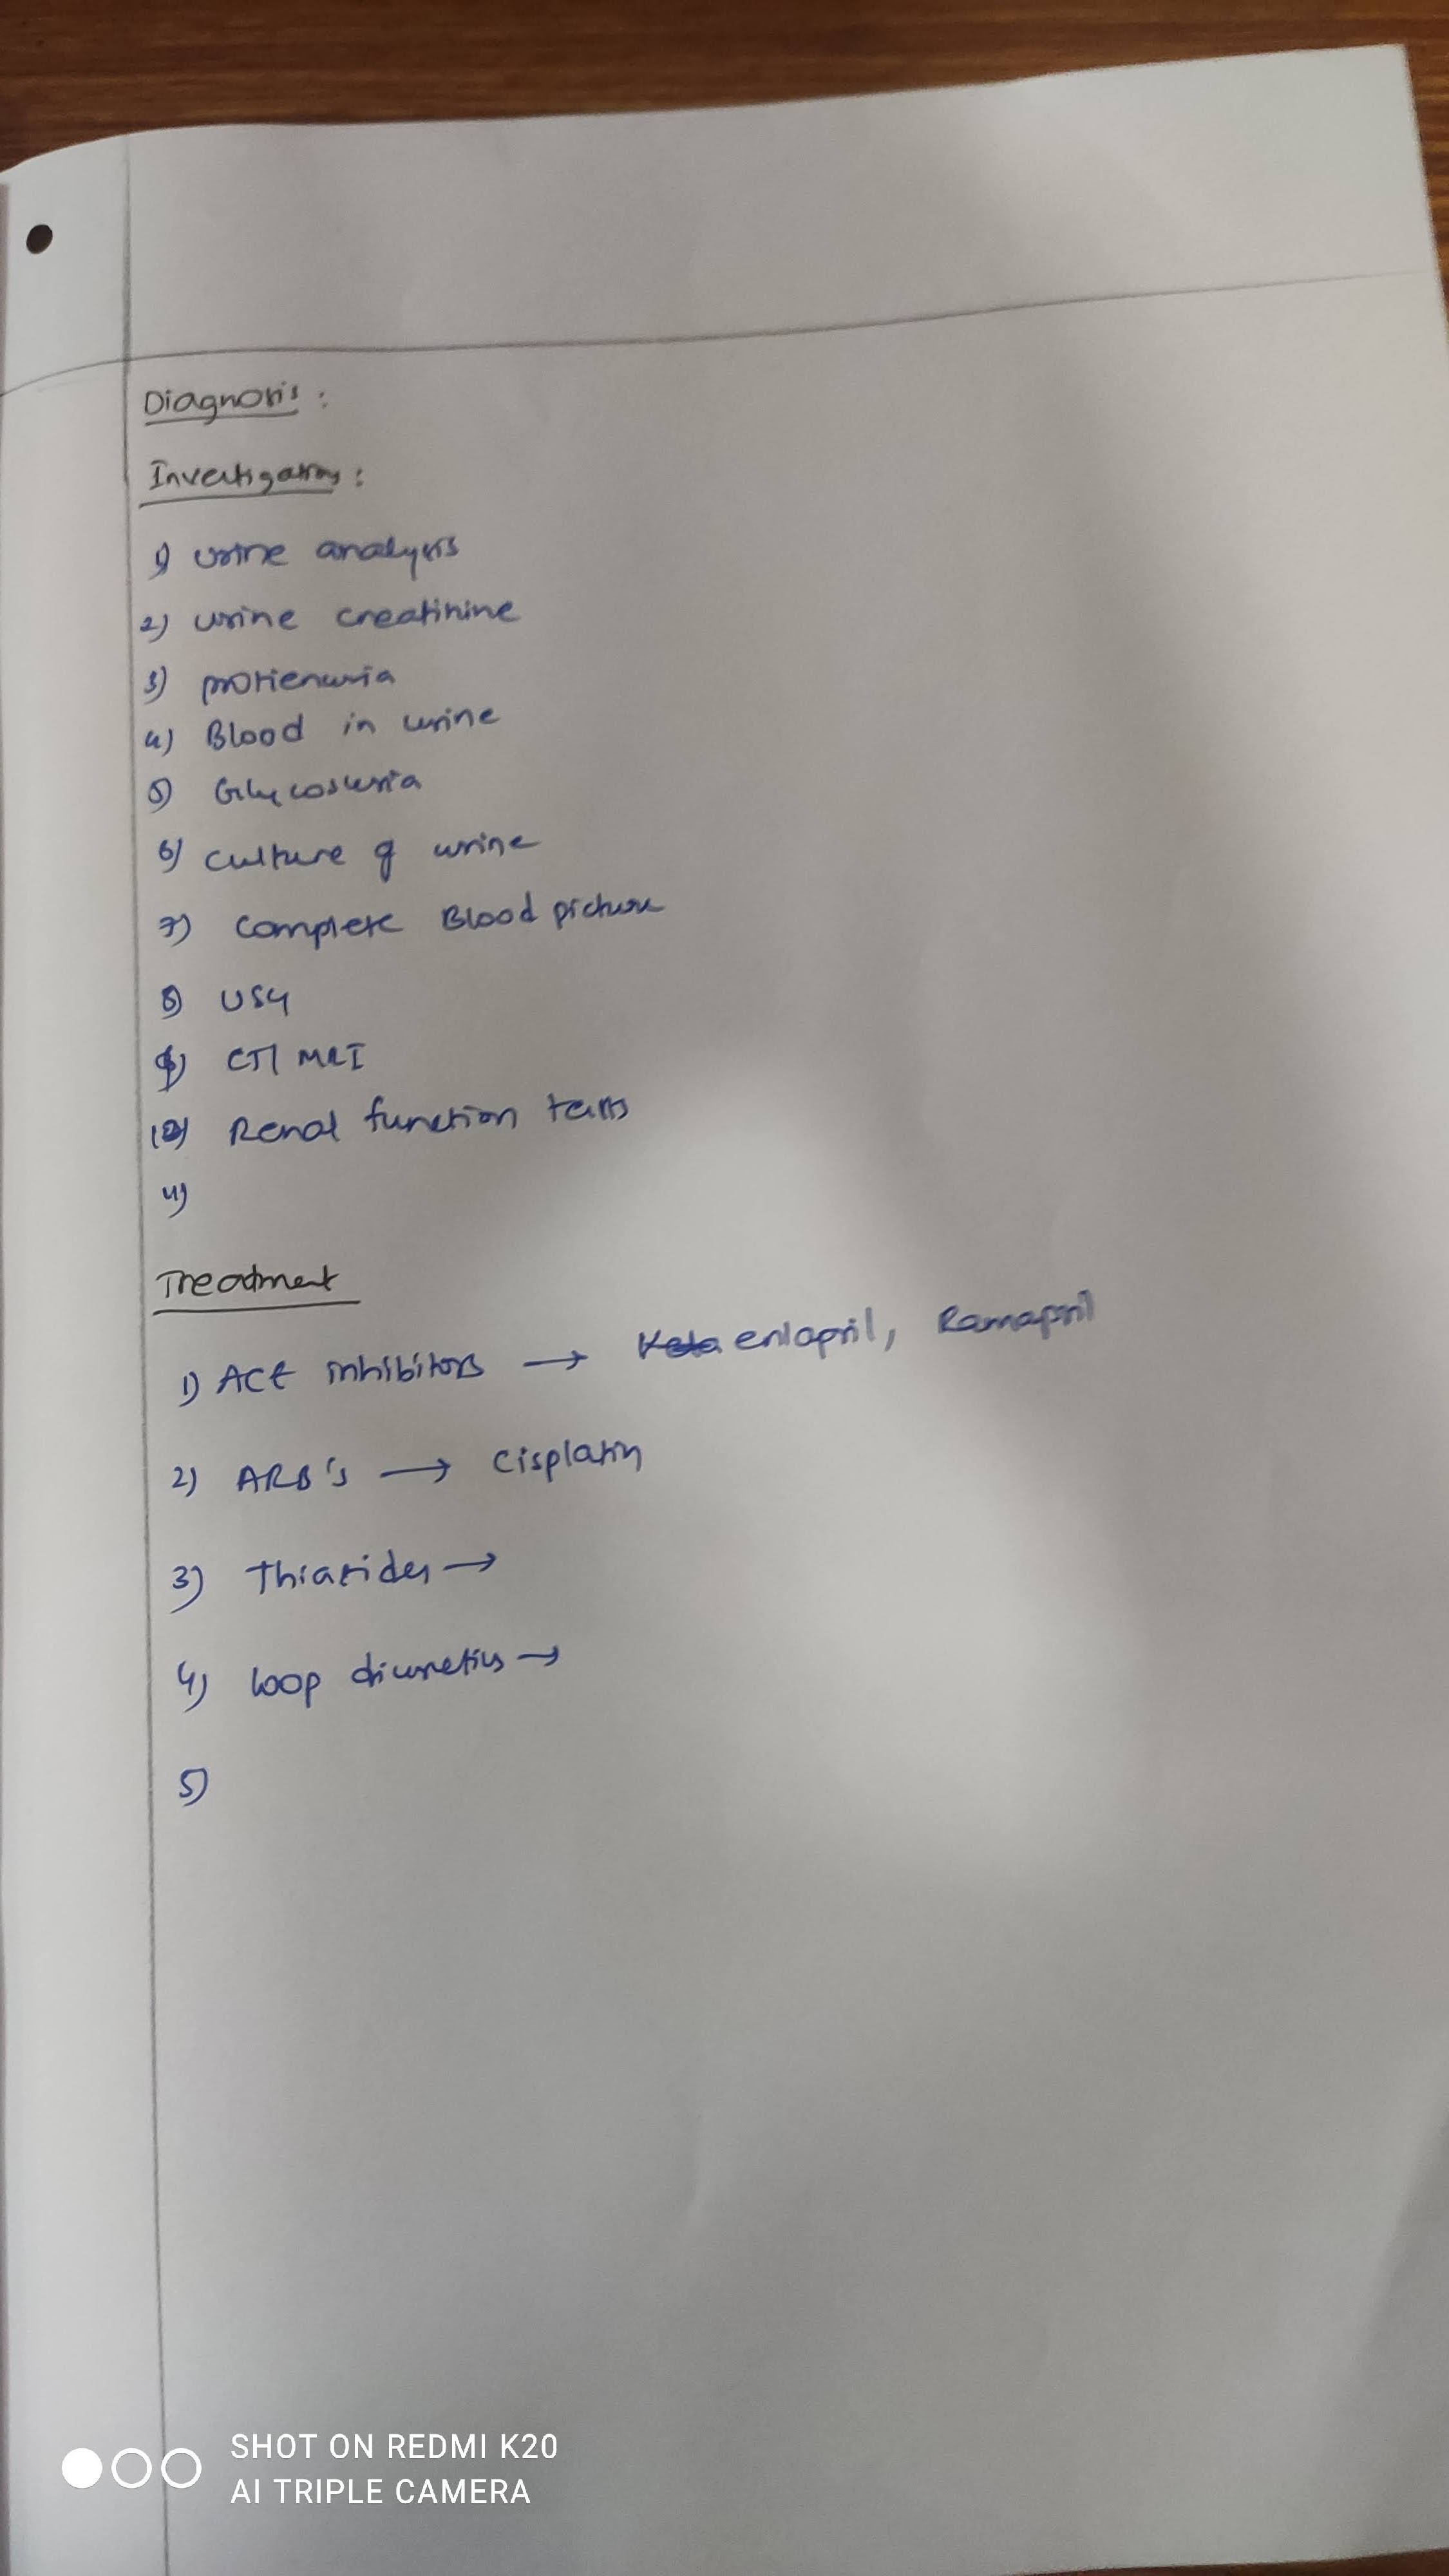 Diagnosis :
Investigations :
1) urine analysis
2) urine creatinine
3) protienuria
4) Blood in urine
5) Glycosuria
6) culture of urine
7) complete Blood picture
8) USG
9) CT/ MRI
10) Renal function tests
11)
Treatment
1) ACE inhibitors → enlapril, Ramapril
2) ARB's → Cisplatin
3) Thiazides →
4) loop diuretics →
5)
SHOT ON REDMI K20
AI TRIPLE CAMERA